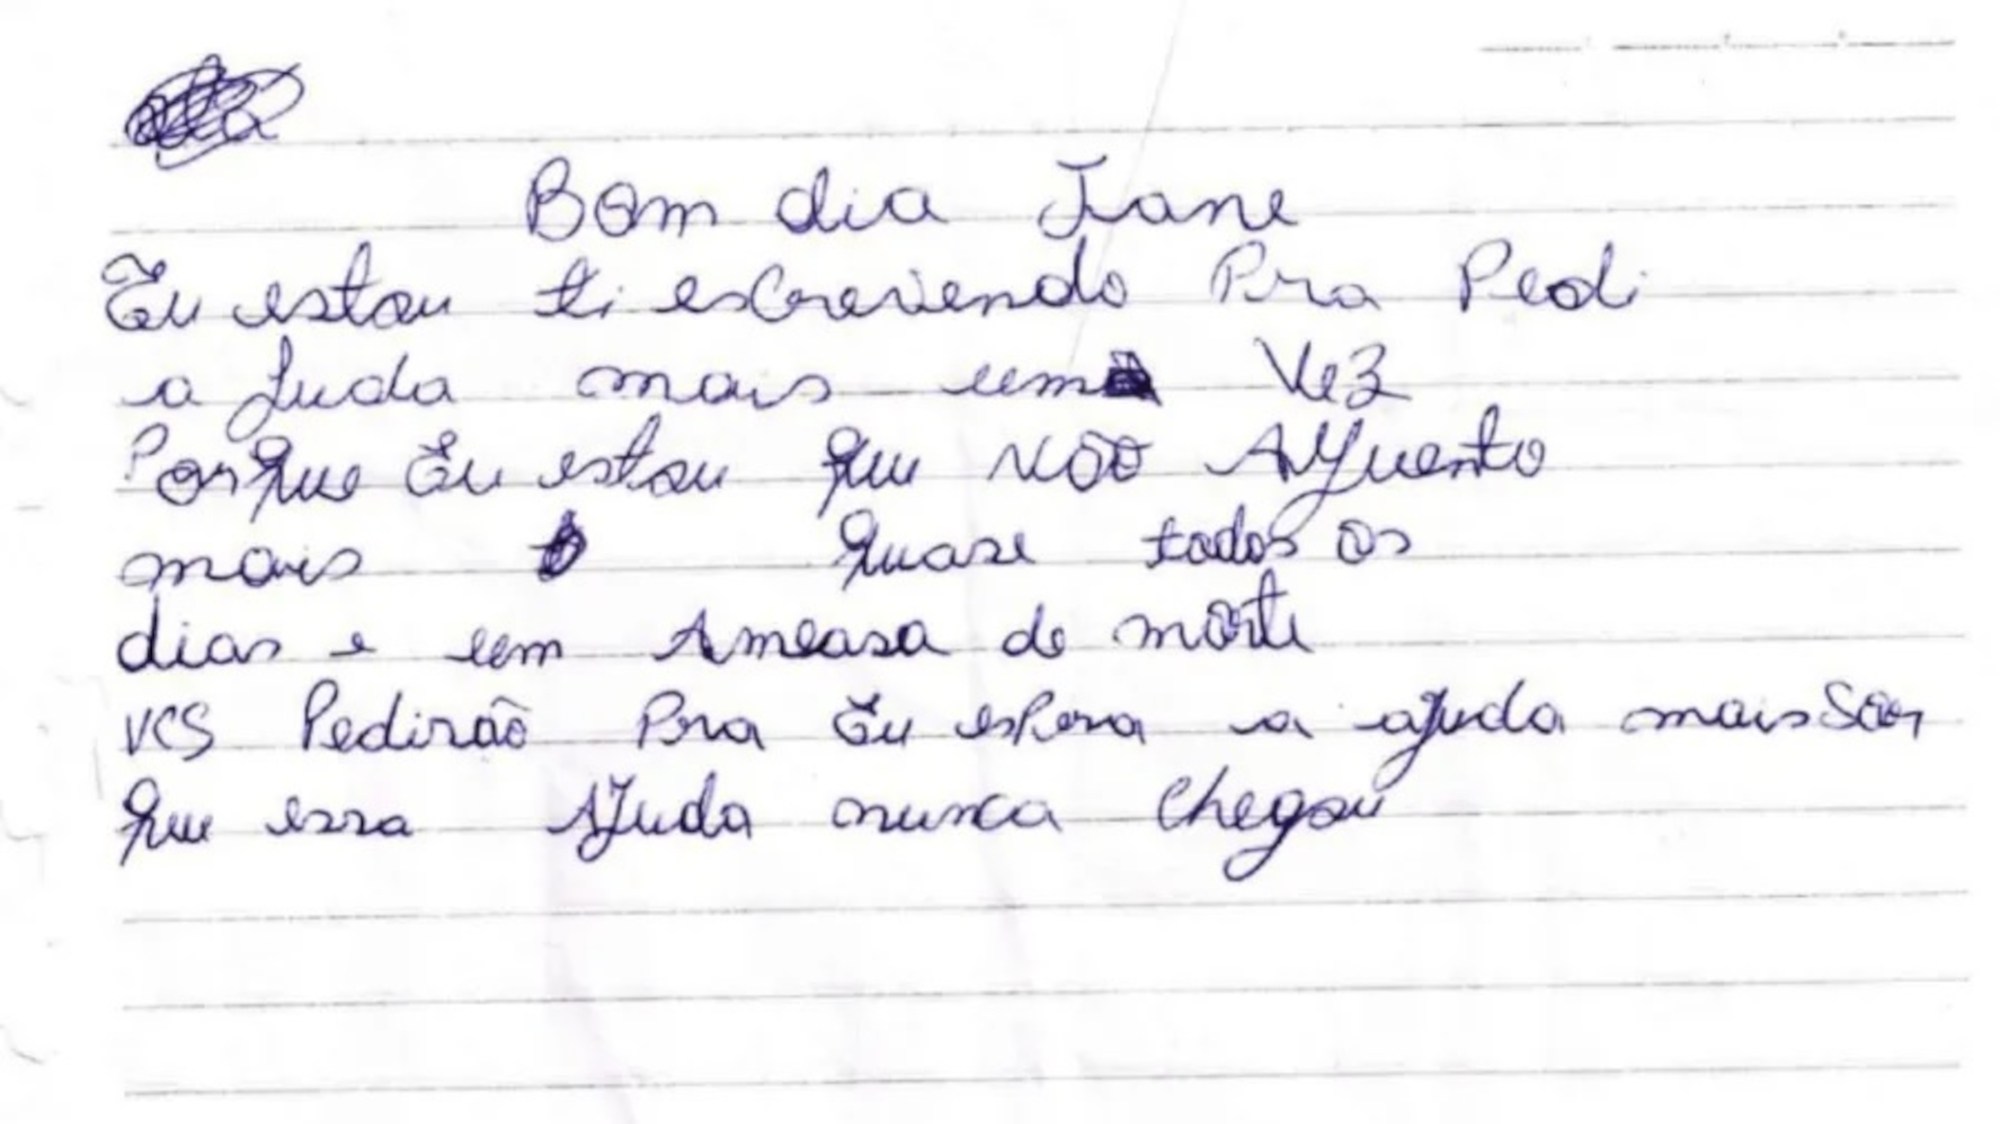 Bom dia Jane
Eu estou ti escrevendo Pra Pedi
a Juda mais uma Vez
Porque Eu estou que NÃO AJuento
mais quase todos os
dias e um Ameasa de morte
VCS Pedirão Pra Eu espera a ajuda mais
que essa AJuda nunca Chegou